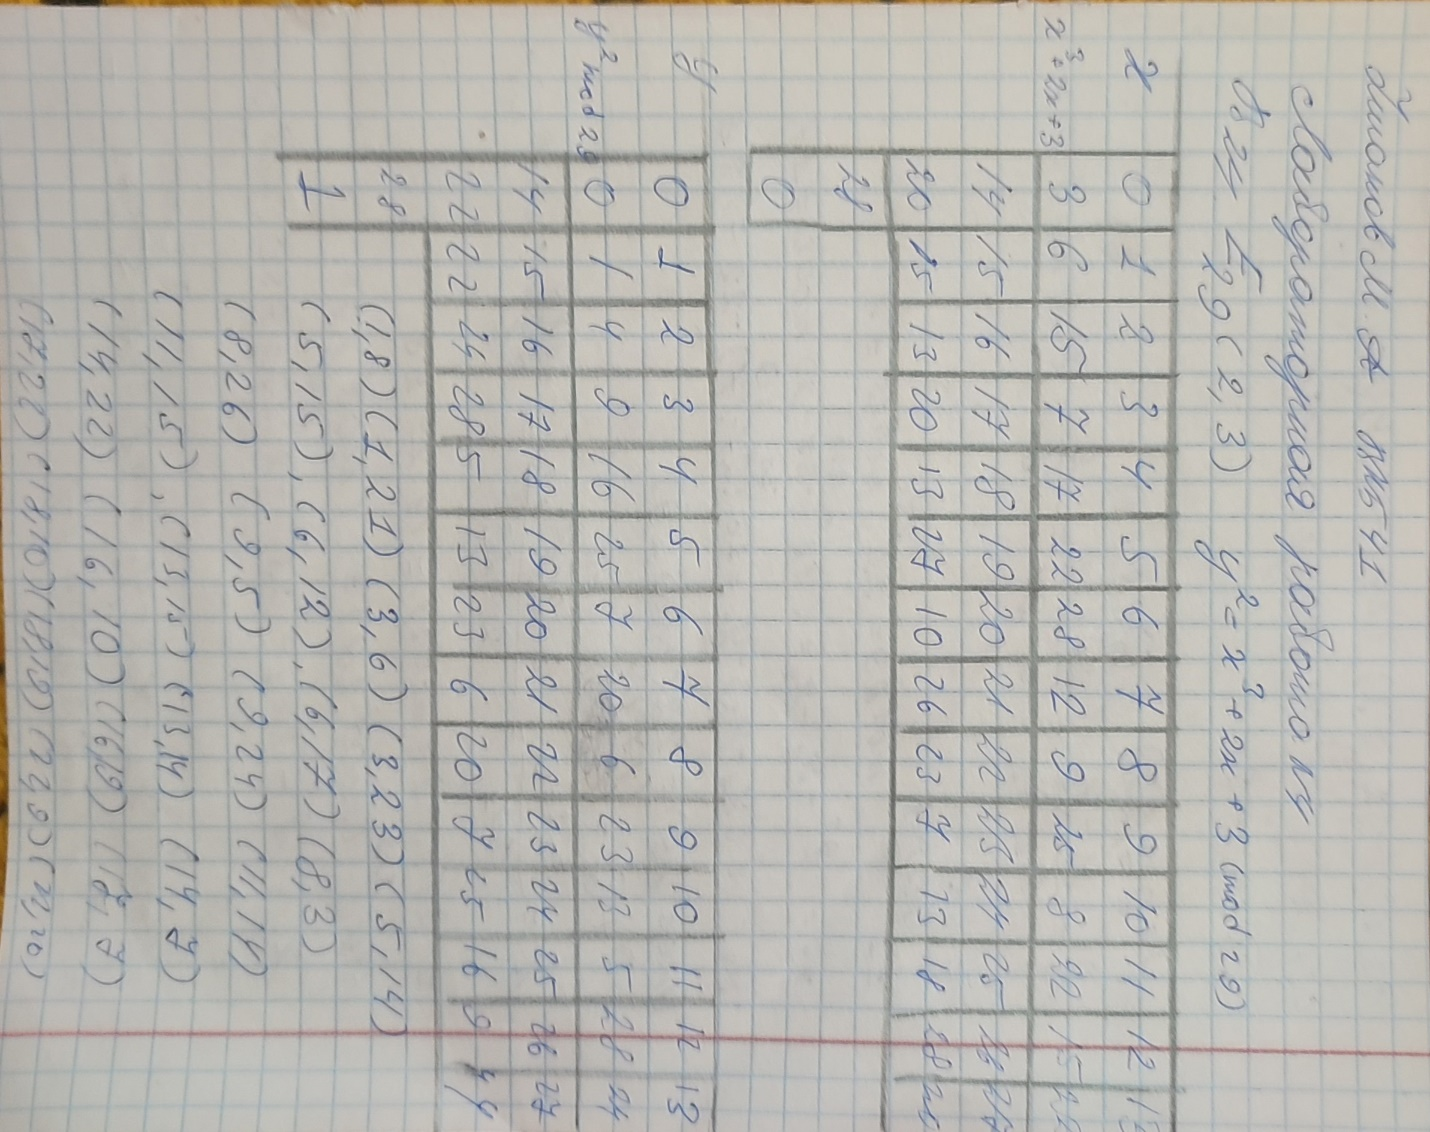 Лабораторная работа №4
E₂₉(2,3) y² = x³ + 2x + 3 (mod 29)
x 0 1 2 3 4 5 6 7 8 9 10 11 12
x³+2x+3 3 6 15 7 17 22 28 12 9 25 8 22 15
14 15 16 17 18 19 20 21 22 23 24 25 26 27
20 15 13 20 13 27 10 26 23 7 13 18 28 20
28
0
y 0 1 2 3 4 5 6 7 8 9 10 11 12 13
y² mod 29 0 1 4 9 16 25 7 20 6 23 13 5 28 24
14 15 16 17 18 19 20 21 22 23 24 25 26 27
22 22 24 28 5 13 23 6 20 7 25 16 9 4
28
1
(1,8) (1,21) (3,6) (3,23) (5,14)
(5,15), (6,12), (6,17) (8,3)
(8,26) (9,5) (9,24) (11,14)
(11,15), (13,15) (13,14) (14,7)
(14,22) (16,10) (16,19)